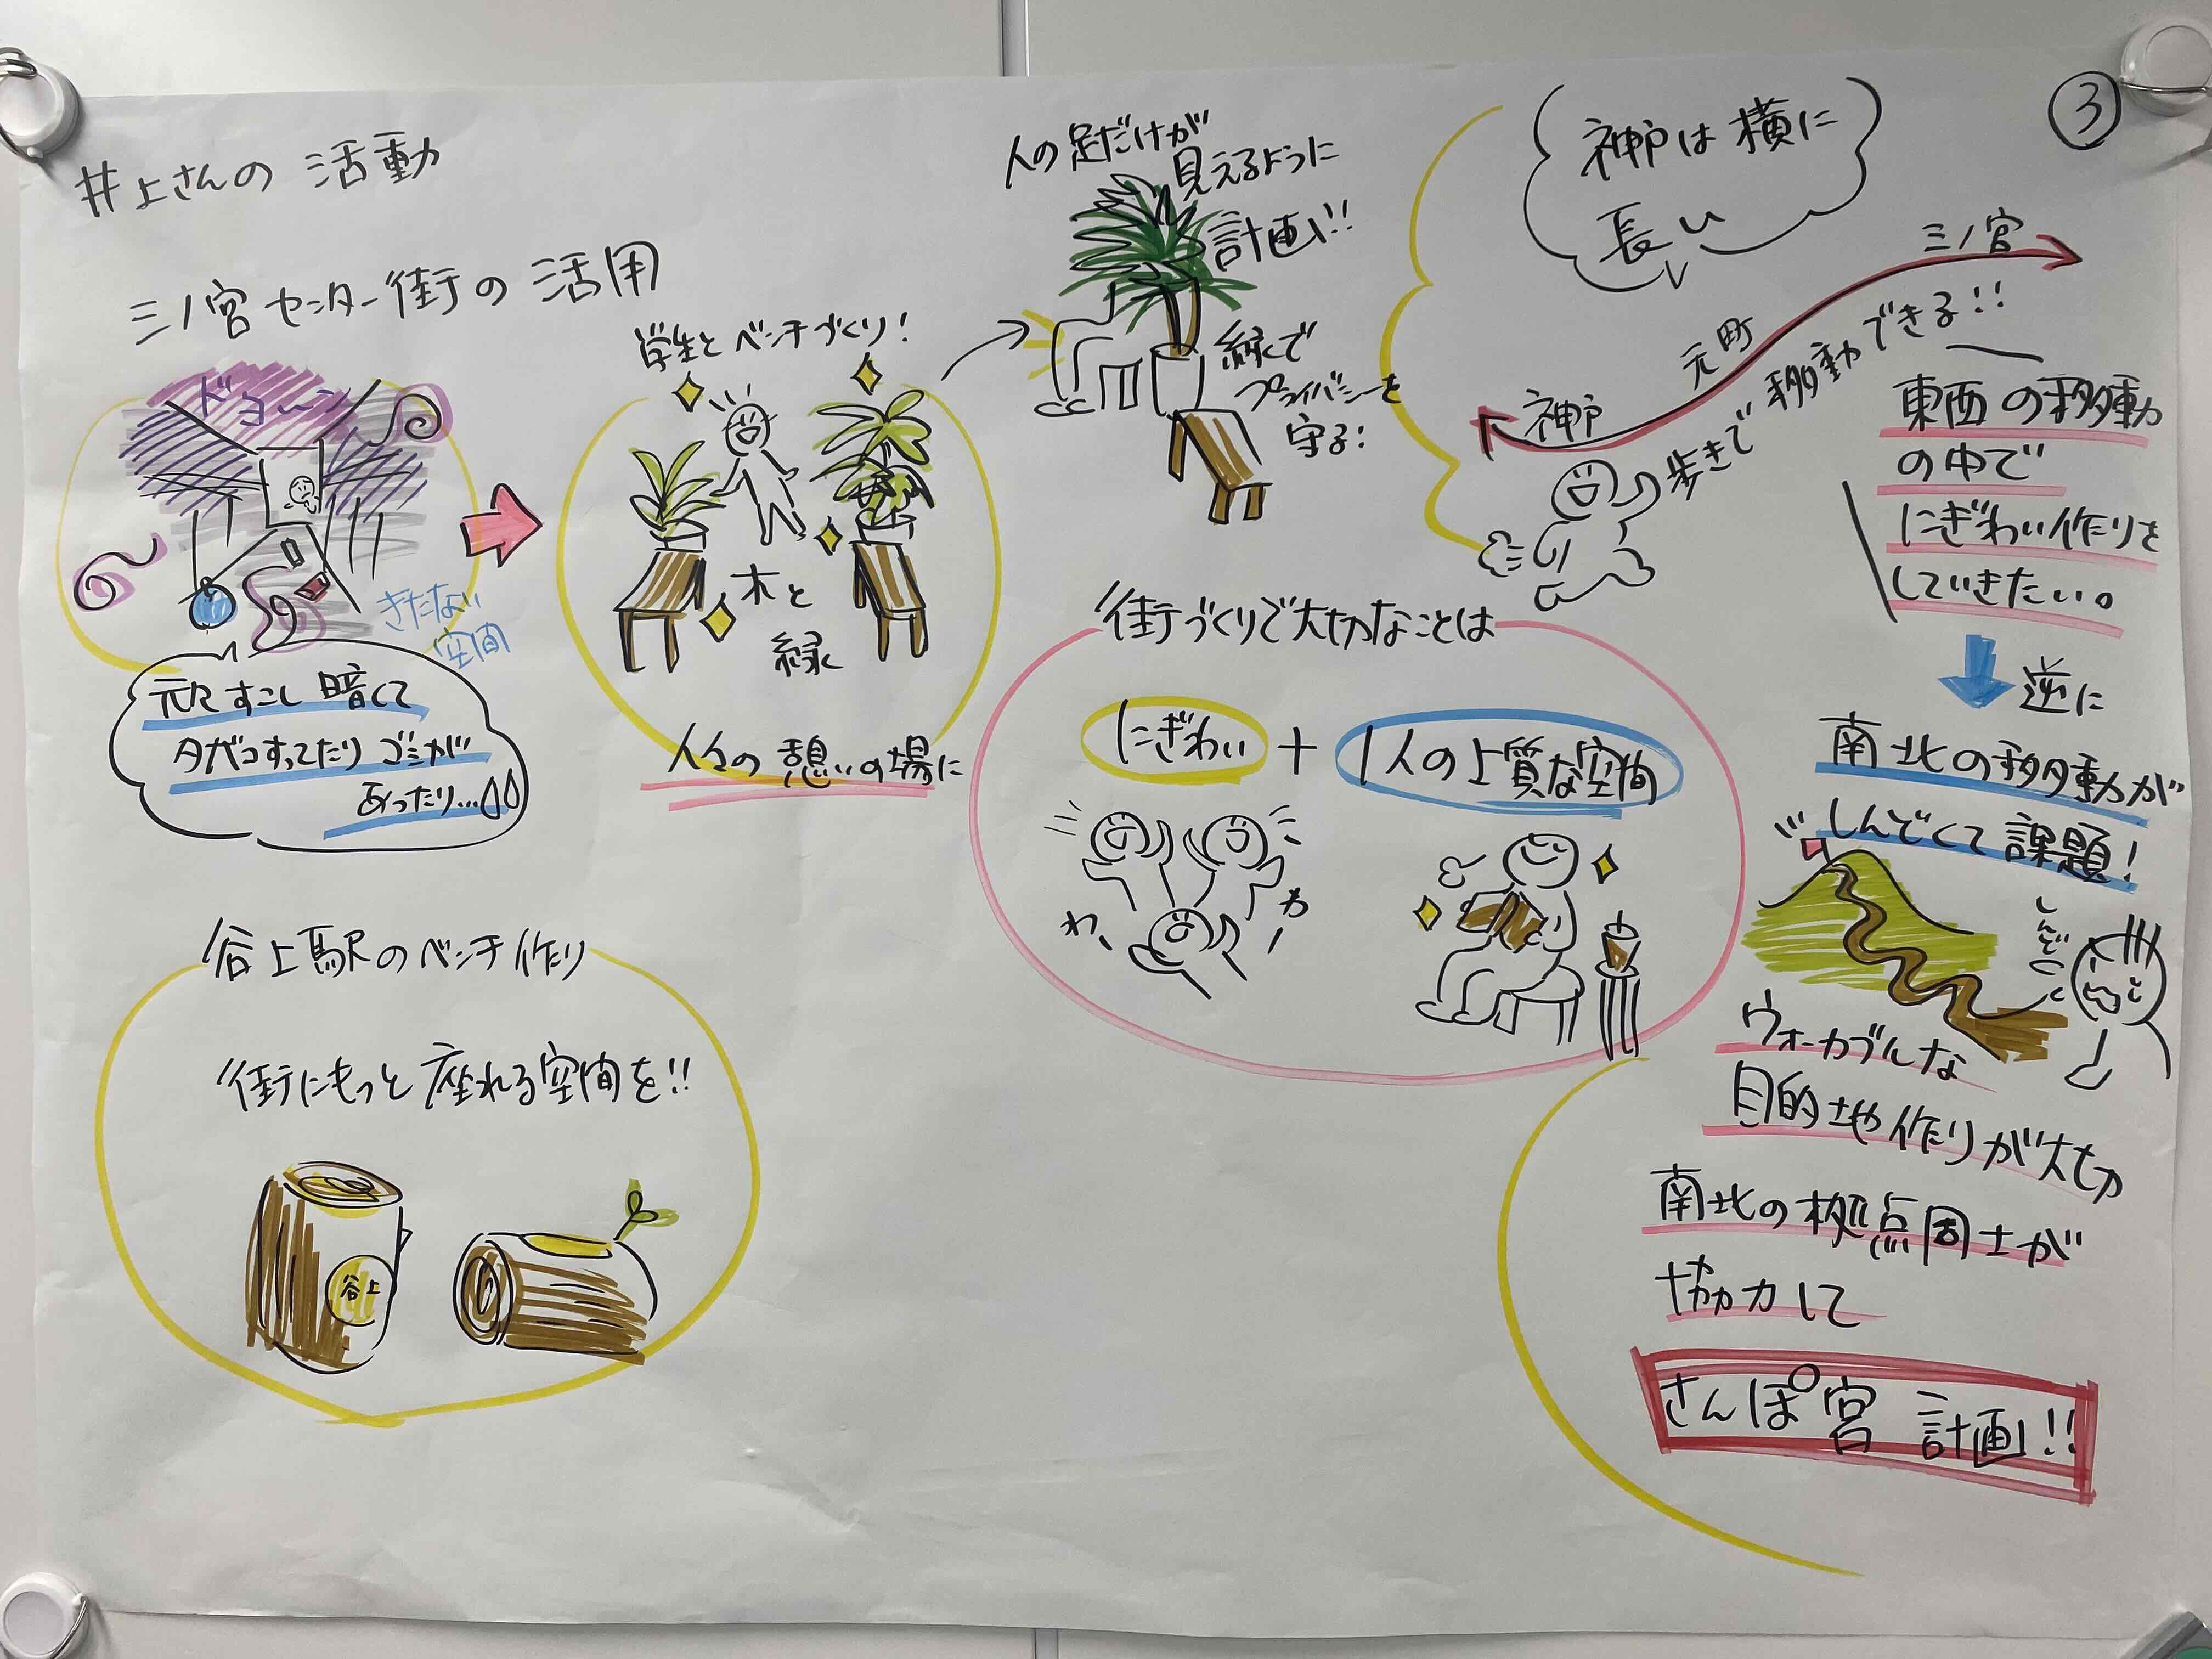 ③
井上さんの 活動
三ノ宮センター街の 活用
ドヨーン
きたない
空間
元々すこし暗くて
タバコすってたりゴミが
あったり…
学生とベンチづくり!
木と
緑
人々の憩いの場に
人の足だけが
見えるように
計画!!
緑で
プライバシーを
守る!
神戸は横に
長い
三ノ宮
元町
神戸
歩きで移動できる!!
東西の移動
の中で
にぎわい作りを
していきたい。
逆に
南北の移動が
しんどくて課題!
しんどっ
ウォーカブルな
目的地作りが大切
南北の拠点同士が
協力して
さんぽ宮 計画!!
街づくりで大切なことは
にぎわい + 1人の上質な空間
わー
わー
谷上駅のベンチ作り
街にもっと座れる空間を!!
谷上